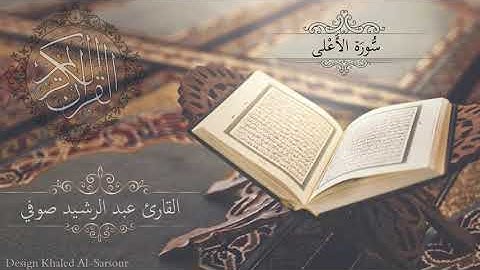 سُّورَة الأَعْلى
القرآن الكريم
القارئ عبد الرشيد صوفي
Design Khaled Al-Sarsour